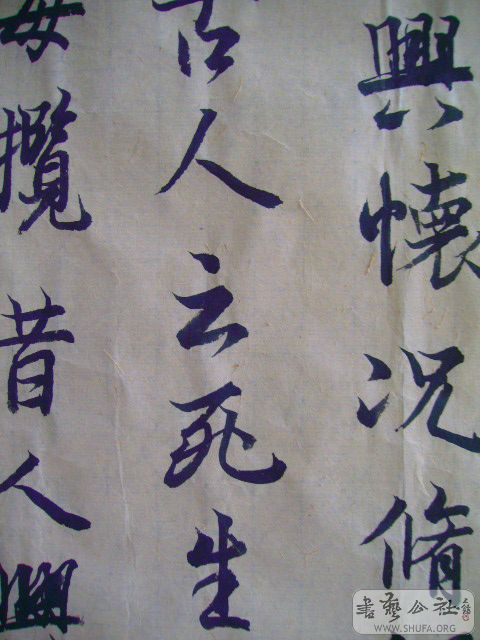 興懷況脩
古人云死生
每攬昔人興
書藝公社
WWW.SHUFA.ORG